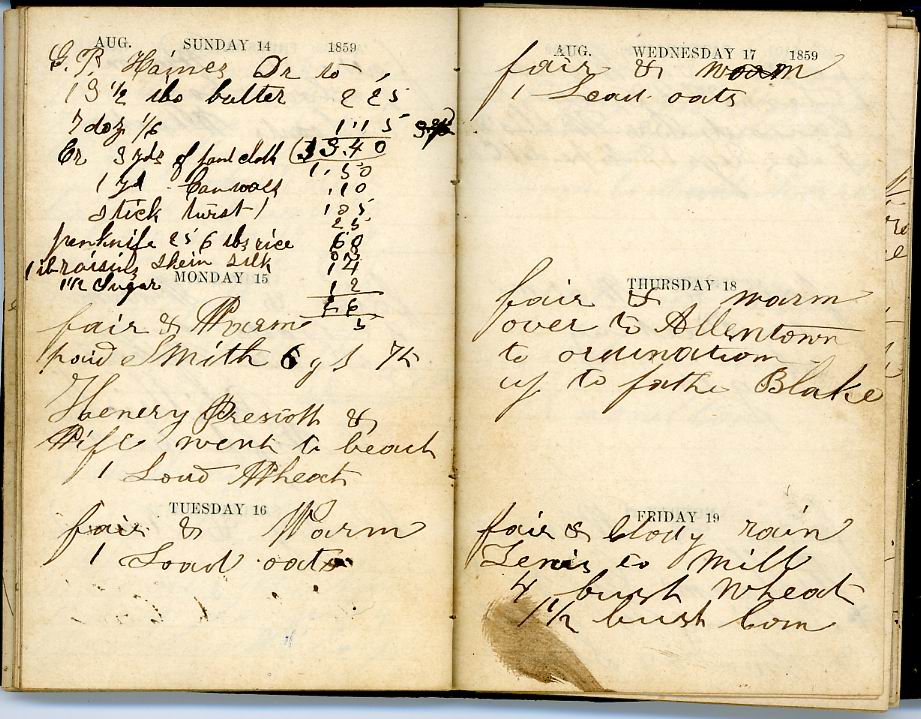 AUG. SUNDAY 14 1859
G. R. Haines Dr to
13 1/2 lbs butter 2 25
7 doz 1/6 1 15
Cr 3 yds of pant cloth (3.40
1.50
1 yd Canvass .10
stick twist 105
25
penknife 25 6 lbs rice 60
1 lb raisins skein silk
14
1 1/2 Sugar 12
MONDAY 15
fair & Warm
paid Smith 6
Henery Prescott &
Wife went to beach
1 Load Wheat
TUESDAY 16
fair & Warm
1 Load oats
AUG. WEDNESDAY 17 1859
fair & warm
1 Load oats
THURSDAY 18
fair & warm
over to Allentown
to ordination
up to fathe Blake
FRIDAY 19
fair & clody rain
Lewis to Mill
4 bush Wheat
1 1/2 bush Corn